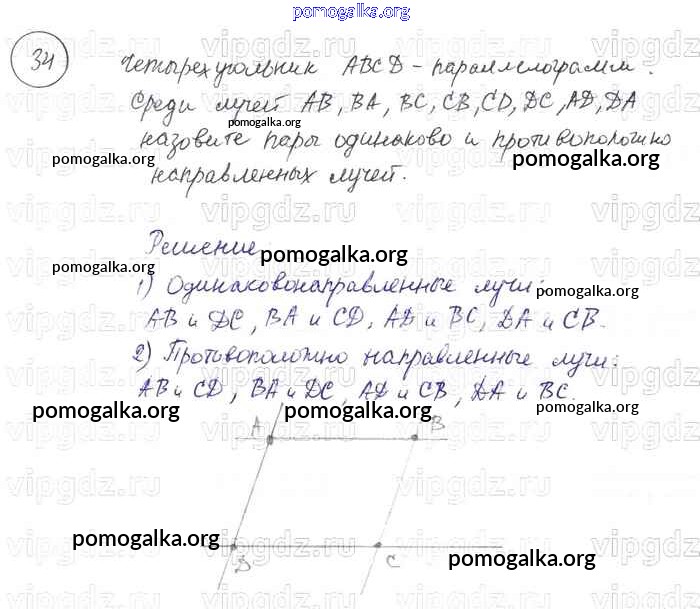 pomogalka.org
34
Четырехугольник ABCD - параллелограмм.
Среди лучей AB, BA, BC, CB, CD, DC, AD, DA
pomogalka.org
назовите пары одинаково и противоположно
pomogalka.org
pomogalka.org
направленных лучей.
Решение.
pomogalka.org
pomogalka.org
1) Одинаковонаправленные лучи:
pomogalka.org
AB и DC, BA и CD, AD и BC, DA и CB.
2) Противоположно направленные лучи:
AB и CD, BA и DC, AD и CB, DA и BC.
pomogalka.org
pomogalka.org
pomogalka.org
A
B
pomogalka.org
pomogalka.org
D
C
vipgdz.ru